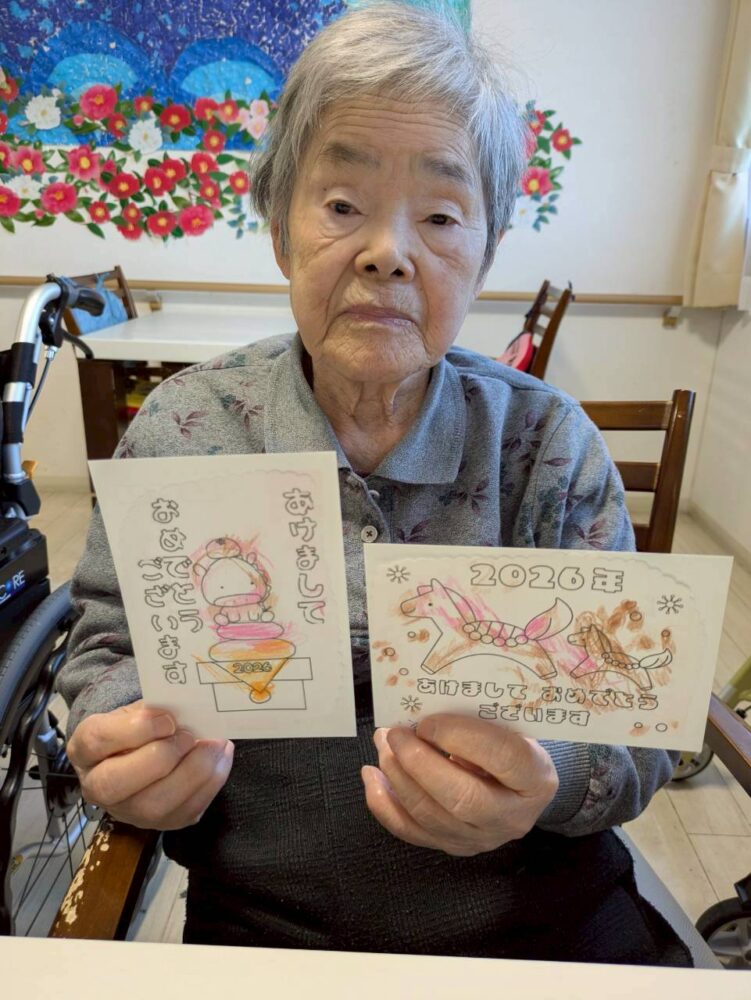 あけまして
おめでとう
ございます
2026
2026年
あけまして おめでとう
ございます
CORE